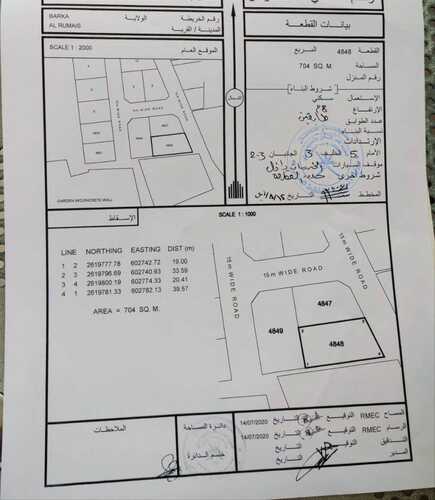 بيانات القطعة
BARKA
AL RUMAIS
رقم الخريطة
الولاية
المدينة / القرية
SCALE 1 : 2000
الموقع العام
15m WIDE ROAD
GARDEN W/CONCRETE WALL
القطعة 4848 المربع
المساحة 704 SQ. M.
رقم المنزل
شروط البناء
الإستعمال سكني
الإرتفاع
عدد الطوابق طابقين
نسبة البناء
الإرتدادات
الأمام 5 الخلف 3 الجانبان 2-3
موقف السيارات
شروط أخرى
المخطط التاريخ
الإسقاط
SCALE 1 : 1000
LINE NORTHING EASTING DIST (m)
1 2 2619777.78 602742.72 19.00
2 3 2619796.69 602740.93 33.59
3 4 2619800.19 602774.33 20.41
4 1 2619781.33 602782.13 39.57
AREA = 704 SQ. M.
15m WIDE ROAD
15m WIDE ROAD
15m WIDE ROAD
4847
4849
4848
الملاحظات
دائرة المساحة
ختم الدائرة
المساح RMEC التوقيع التاريخ 14/07/2020
الرسام RMEC التوقيع التاريخ 14/07/2020
التدقيق التوقيع التاريخ
المدير